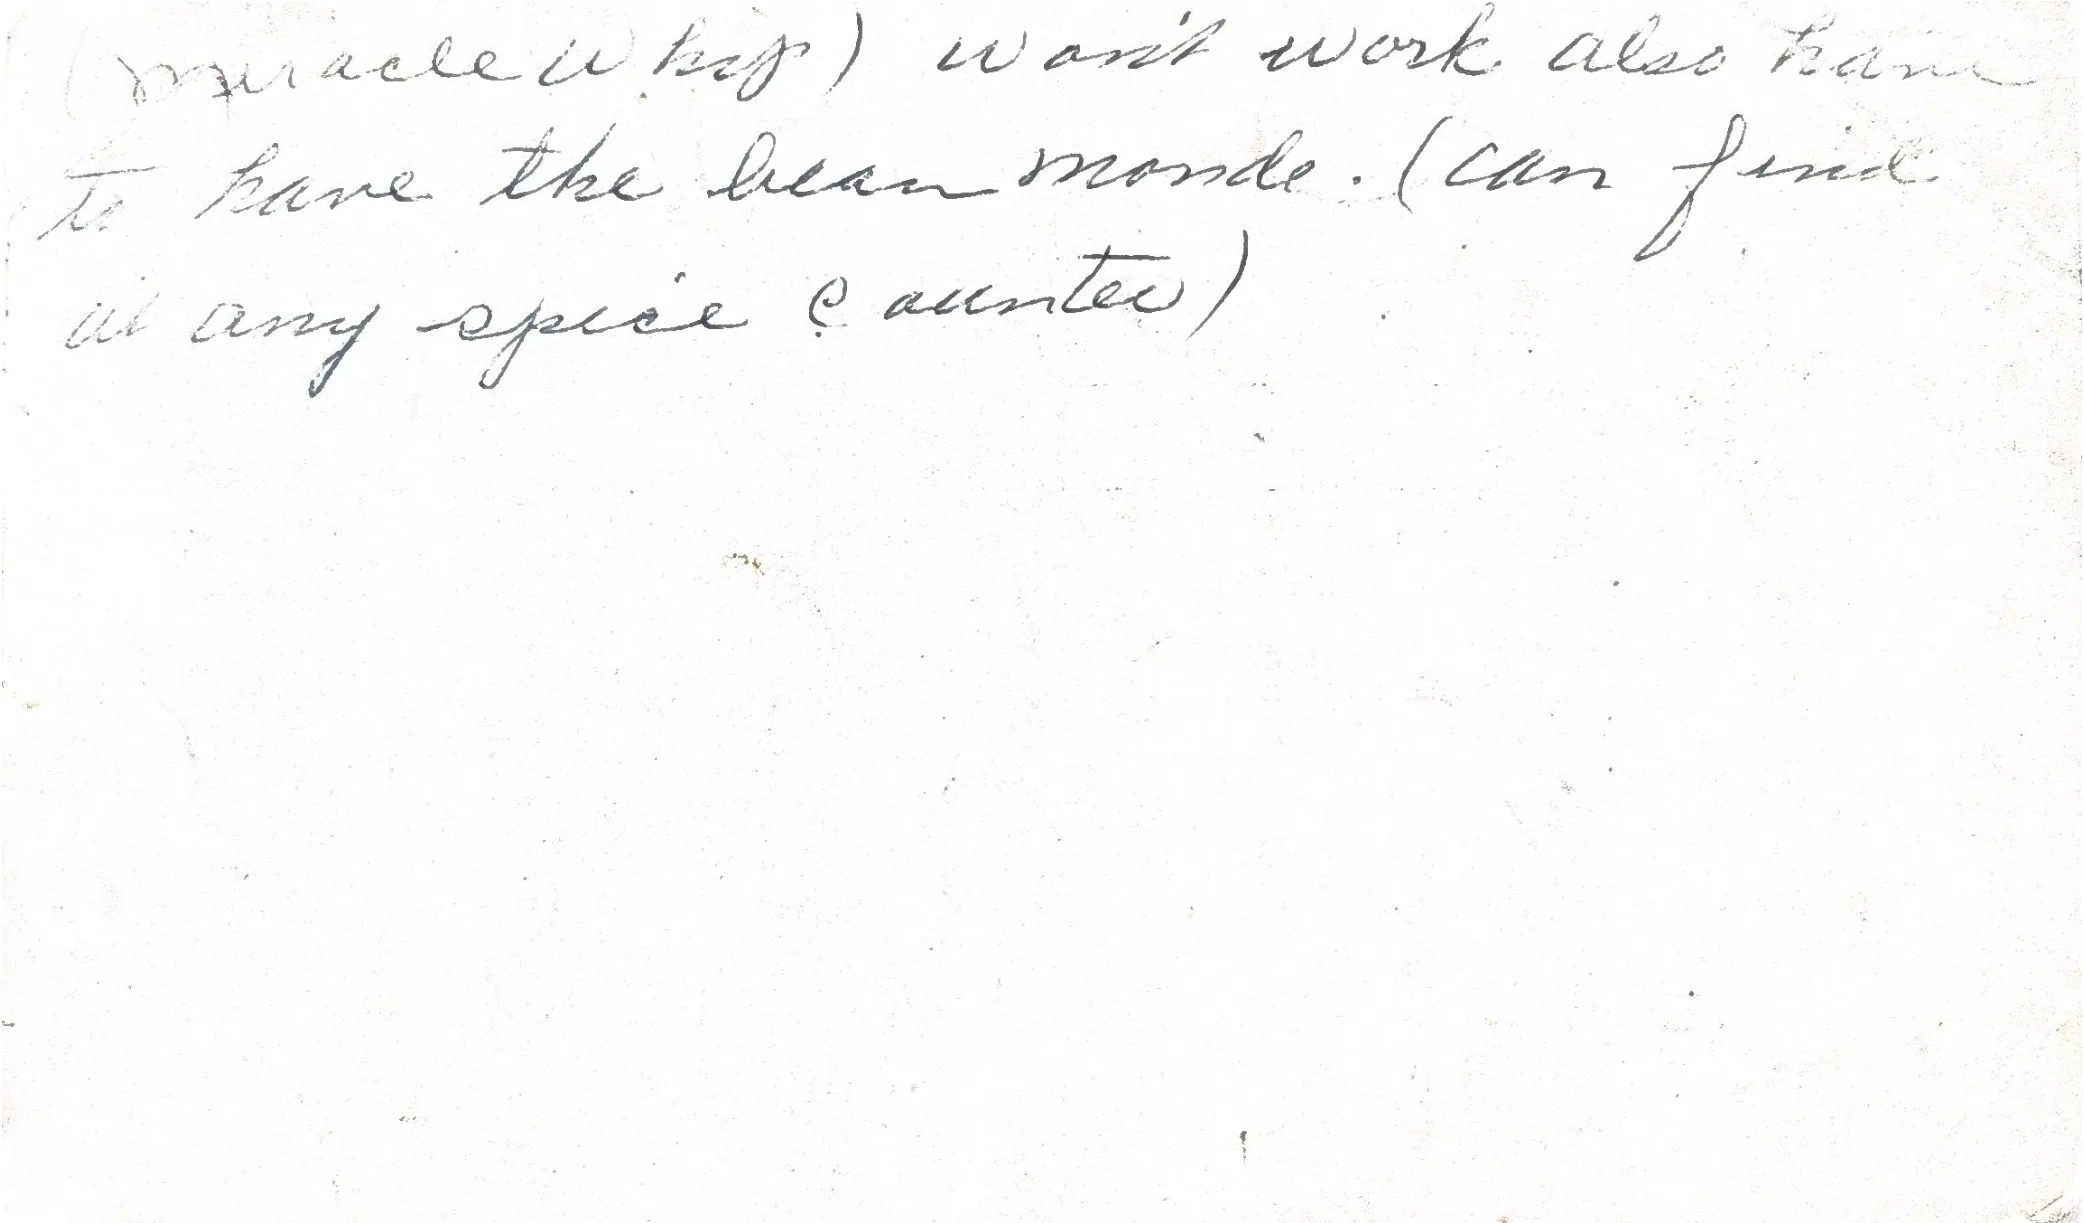 (Miracle Whip) won't work also have
to have the beau monde. (can find
at any spice counter)